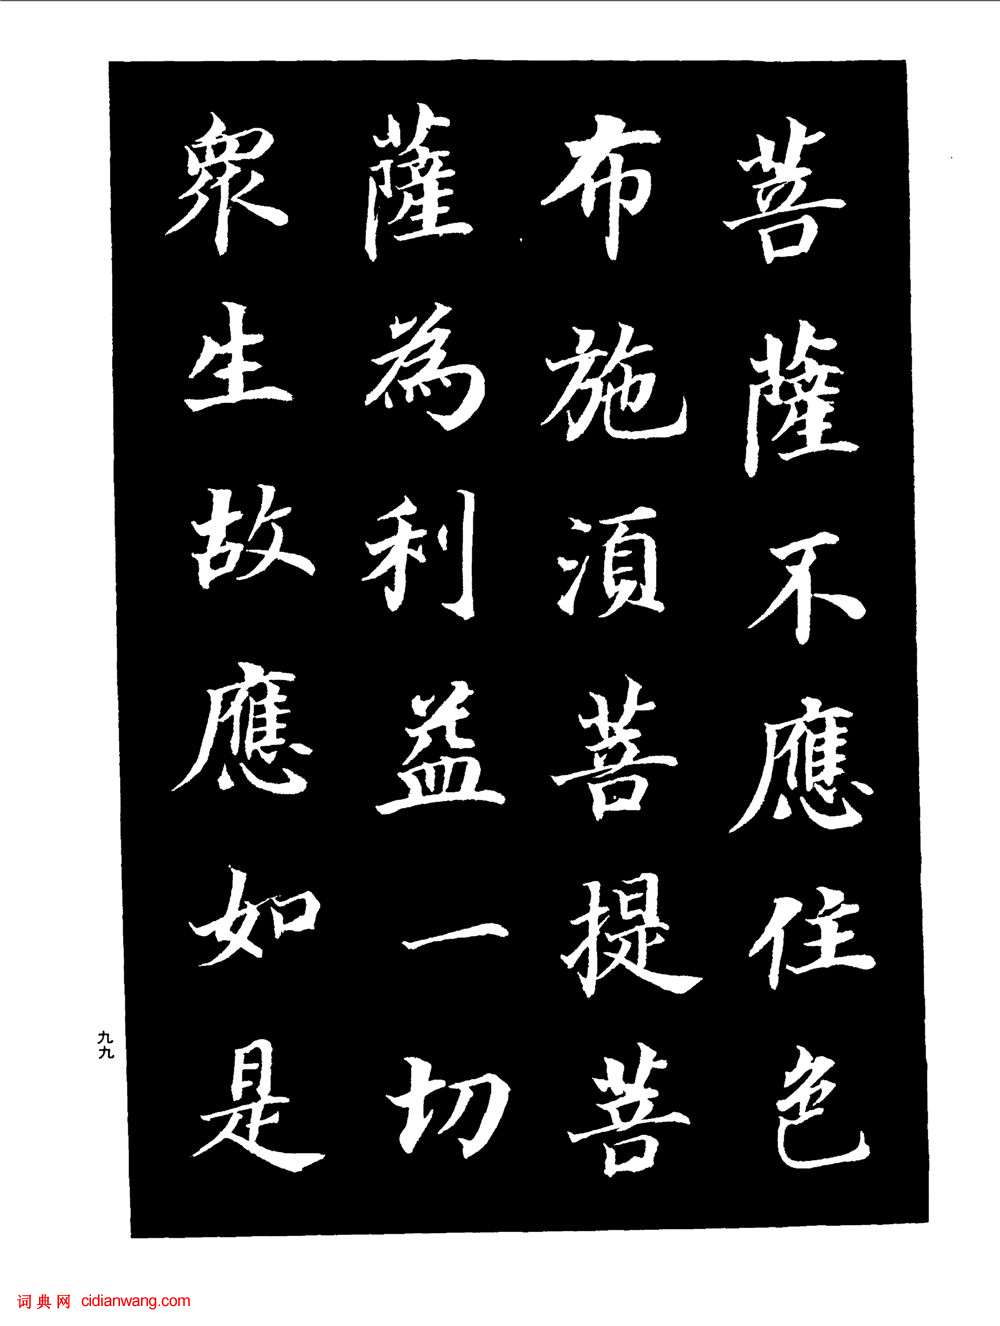 菩薩不應住色
布施須菩提菩
薩為利益一切
衆生故應如是
九九
词典网 cidianwang.com